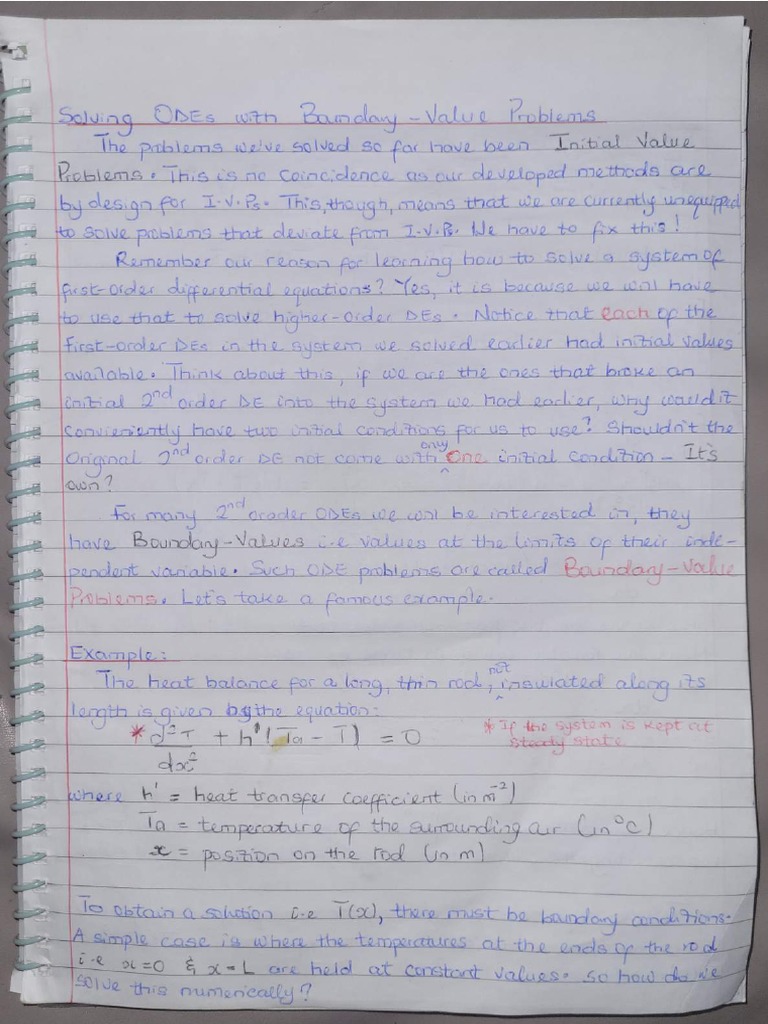 Solving ODEs with Boundary-Value Problems
The problems we've solved so far have been Initial Value
Problems. This is no coincidence as our developed methods are
by design for I.V.Ps. This, though, means that we are currently unequipped
to solve problems that deviate from I.V.Ps. We have to fix this!
Remember our reason for learning how to solve a system of
first-order differential equations? Yes, it is because we will have
to use that to solve higher-order DEs. Notice that each of the
first-order DEs in the system we solved earlier had initial values
available. Think about this, if we are the ones that broke an
initial 2nd order DE into the system we had earlier, why would it
convieniently have two initial conditions for us to use? Shouldn't the
Original 2nd order DE not come with only One initial condition - It's
own?
For many 2nd orader ODEs we will be interested in, they
have Boundary-Values i.e values at the limits of their inde-
pendent variable. Such ODE problems are called Boundary-Value
Problems. Let's take a famous example.
Example:
The heat balance for a long, thin rod, not insulated along its
length is given by the equation:
* d²T/dx² + h'(Ta - T) = 0 * If the system is kept at
steady state
where h' = heat transfer coefficient (in m⁻²)
Ta = temperature of the surrounding air (in °C)
x = position on the rod (in m)
To obtain a solution i.e T(x), there must be boundary conditions.
A simple case is where the temperatures at the ends of the rod
i.e x=0 & x=L are held at constant values. So how do we
solve this numerically?